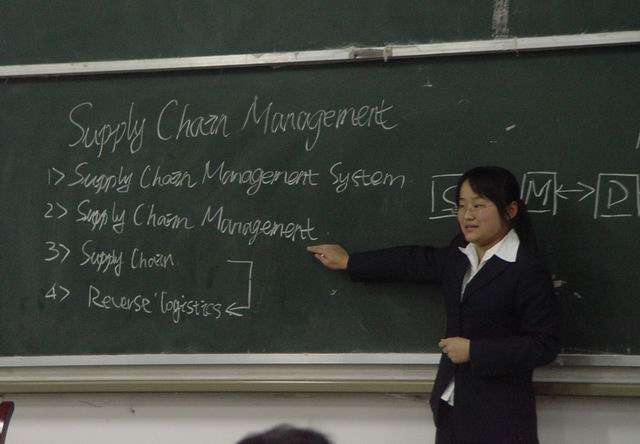 Supply Chain Management
1> Supply Chain Management System
2> Supply Chain Management
3> Supply Chain
4> Reverse logistics
S M D